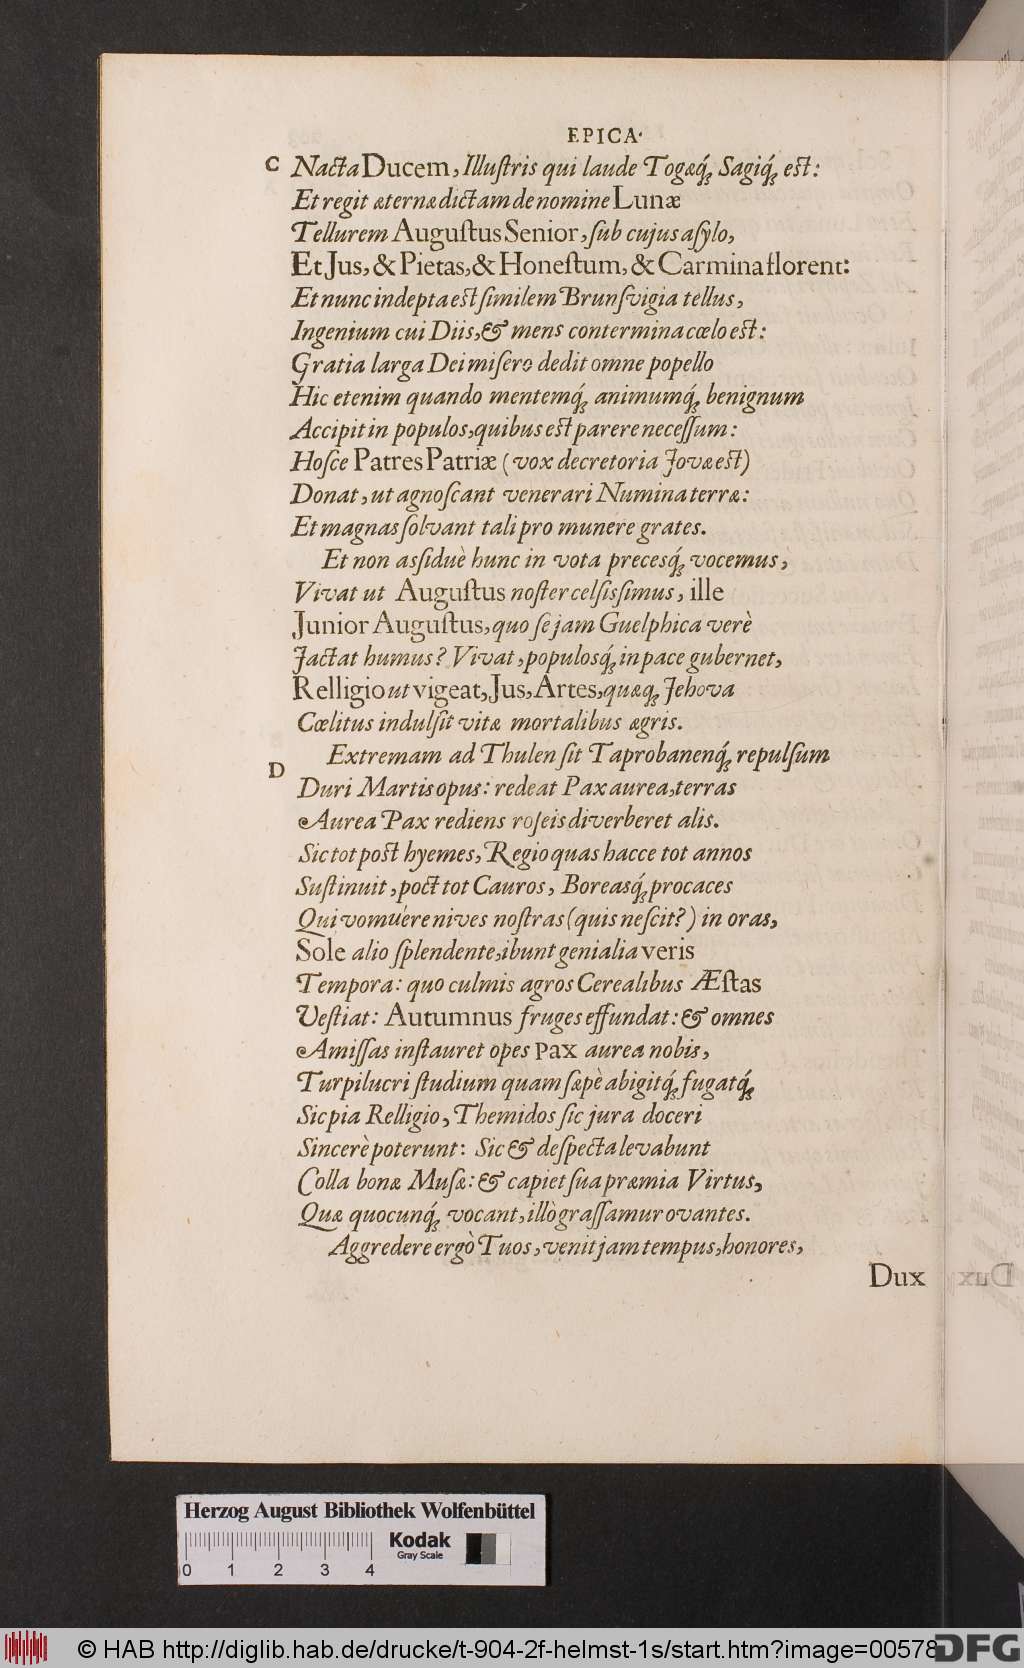 EPICA.
C Nacta Ducem, Illuſtris qui laude Togæq́; Sagiq́; eſt:
Et regit æternæ dictam de nomine Lunæ
Tellurem Auguſtus Senior, ſub cujus aſylo,
Et Jus, & Pietas, & Honeſtum, & Carmina florent:
Et nunc indepta eſt ſimilem Brunſvigia tellus,
Ingenium cui Diis, & mens contermina cœlo eſt:
Gratia larga Dei miſero dedit omne popello
Hic etenim quando mentemq́; animumq́; benignum
Accipit in populos, quibus eſt parere neceſſum:
Hoſce Patres Patriæ (vox decretoria Jovæ eſt)
Donat, ut agnoſcant venerari Numina terræ:
Et magnas ſolvant tali pro munere grates.
Et non aſſiduè hunc in vota precesq́; vocemus,
Vivat ut Auguſtus noſter celſiſſimus, ille
Junior Auguſtus, quo ſe jam Guelphica verè
Jactat humus? Vivat, populosq́; in pace gubernet,
Relligio ut vigeat, Jus, Artes, quæq; Jehova
Cœlitus indulſit vitæ mortalibus ægris.
Extremam ad Thulen ſit Taprobanenq́; repulſum
D Duri Martis opus: redeat Pax aurea, terras
Aurea Pax rediens roſeis diverberet alis.
Sic tot poſt hyemes, Regio quas hacce tot annos
Suſtinuit, poct tot Cauros, Boreasq́; procaces
Qui vomuére nives noſtras (quis neſcit?) in oras,
Sole alio ſplendente, ibunt genialia veris
Tempora: quo culmis agros Cerealibus Æſtas
Veſtiat: Autumnus fruges effundat: & omnes
Amiſſas inſtauret opes Pax aurea nobis,
Turpilucri ſtudium quam ſæpè abigitq́; fugatq́;
Sic pia Relligio, Themidos ſic jura doceri
Sincerè poterunt: Sic & deſpecta levabunt
Colla bonæ Muſæ: & capiet ſua præmia Virtus,
Quæ quocunq́; vocant, illò graſſamur ovantes.
Aggredere ergò Tuos, venit jam tempus, honores,
Dux
Herzog August Bibliothek Wolfenbüttel
Kodak
Gray Scale
0 1 2 3 4
© HAB http://diglib.hab.de/drucke/t-904-2f-helmst-1s/start.htm?image=00578
DFG